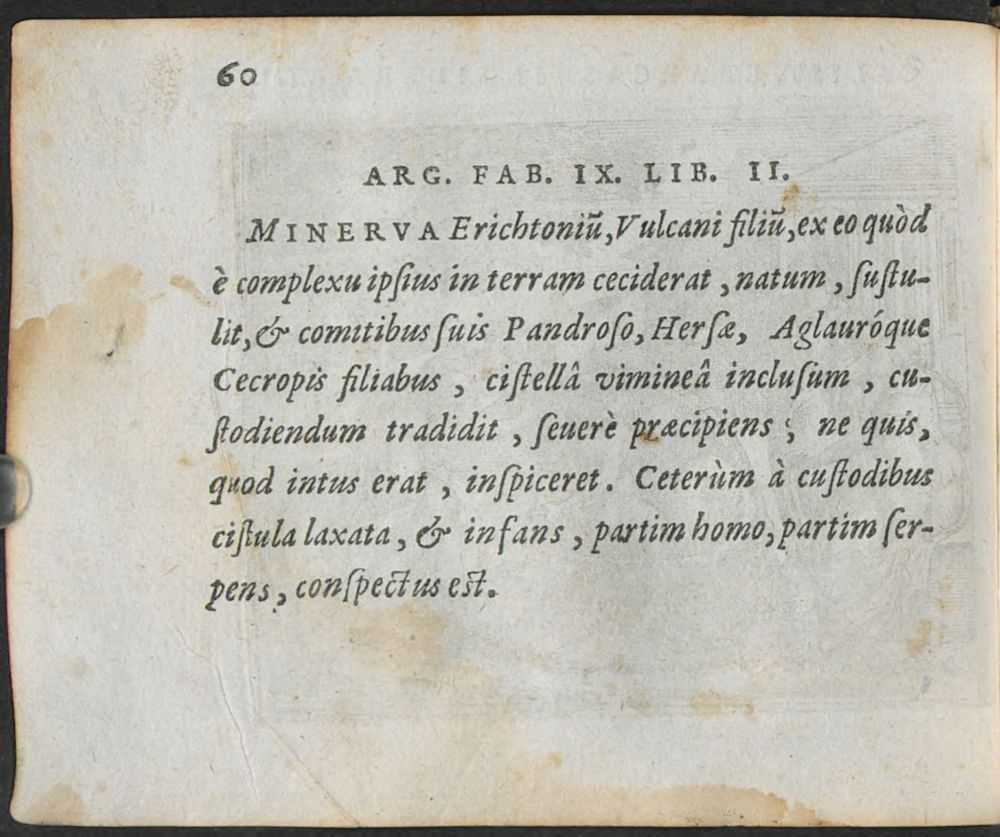 60
ARG. FAB. IX. LIB. II.
MINERVA Erichtoniũ, Vulcani filiũ, ex eo quòd
è complexu ipſius in terram ceciderat, natum, ſuſtu-
lit, & comitibus ſuis Pandroſo, Herſæ, Aglauróque
Cecropis filiabus, ciſtellâ vimineâ incluſum, cu-
ſtodiendum tradidit, ſeuerè præcipiens; ne quis,
quod intus erat, inſpiceret. Ceterùm à cuſtodibus
ciſtula laxata, & infans, partim homo, partim ſer-
pens, conſpectus est.